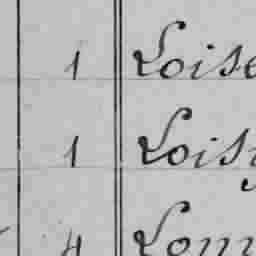 1 Loise
1 Loisy
4 Lom